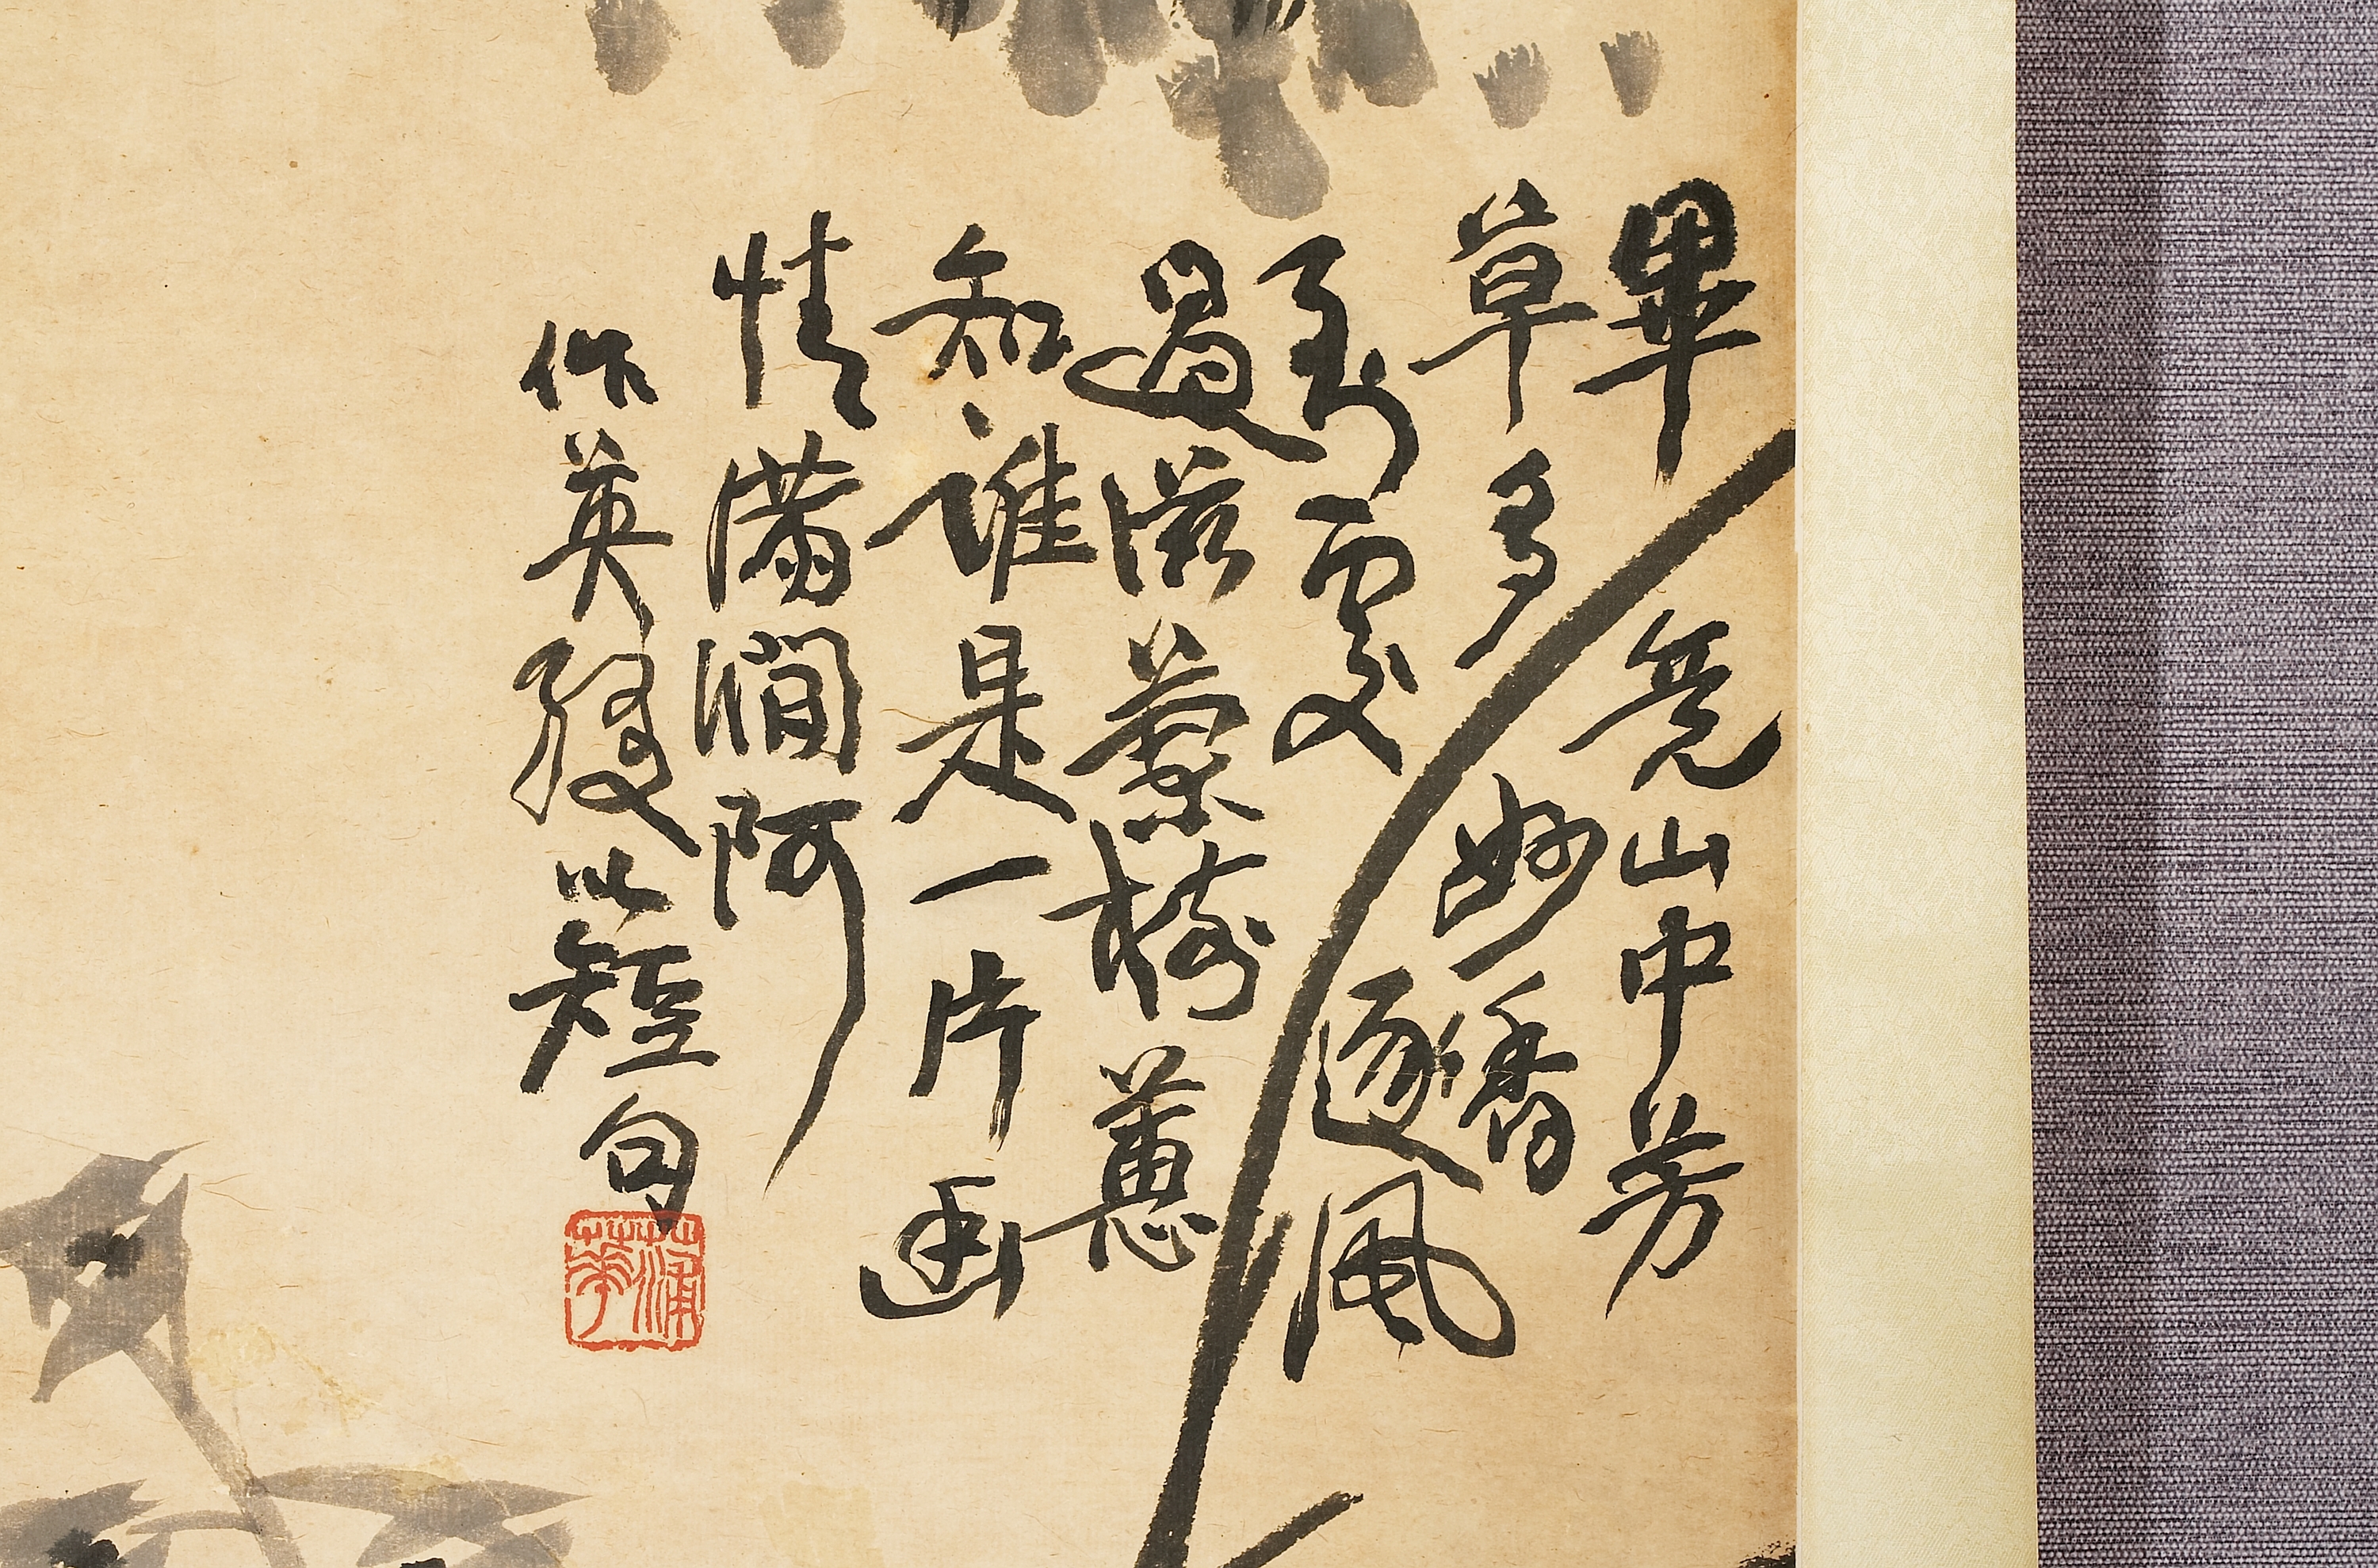 畢竟山中芳
草多妙香
到處逐風
過滋蘭樹蕙
知誰是一片幽
情滿澗阿
作英綴以短句
蒲華